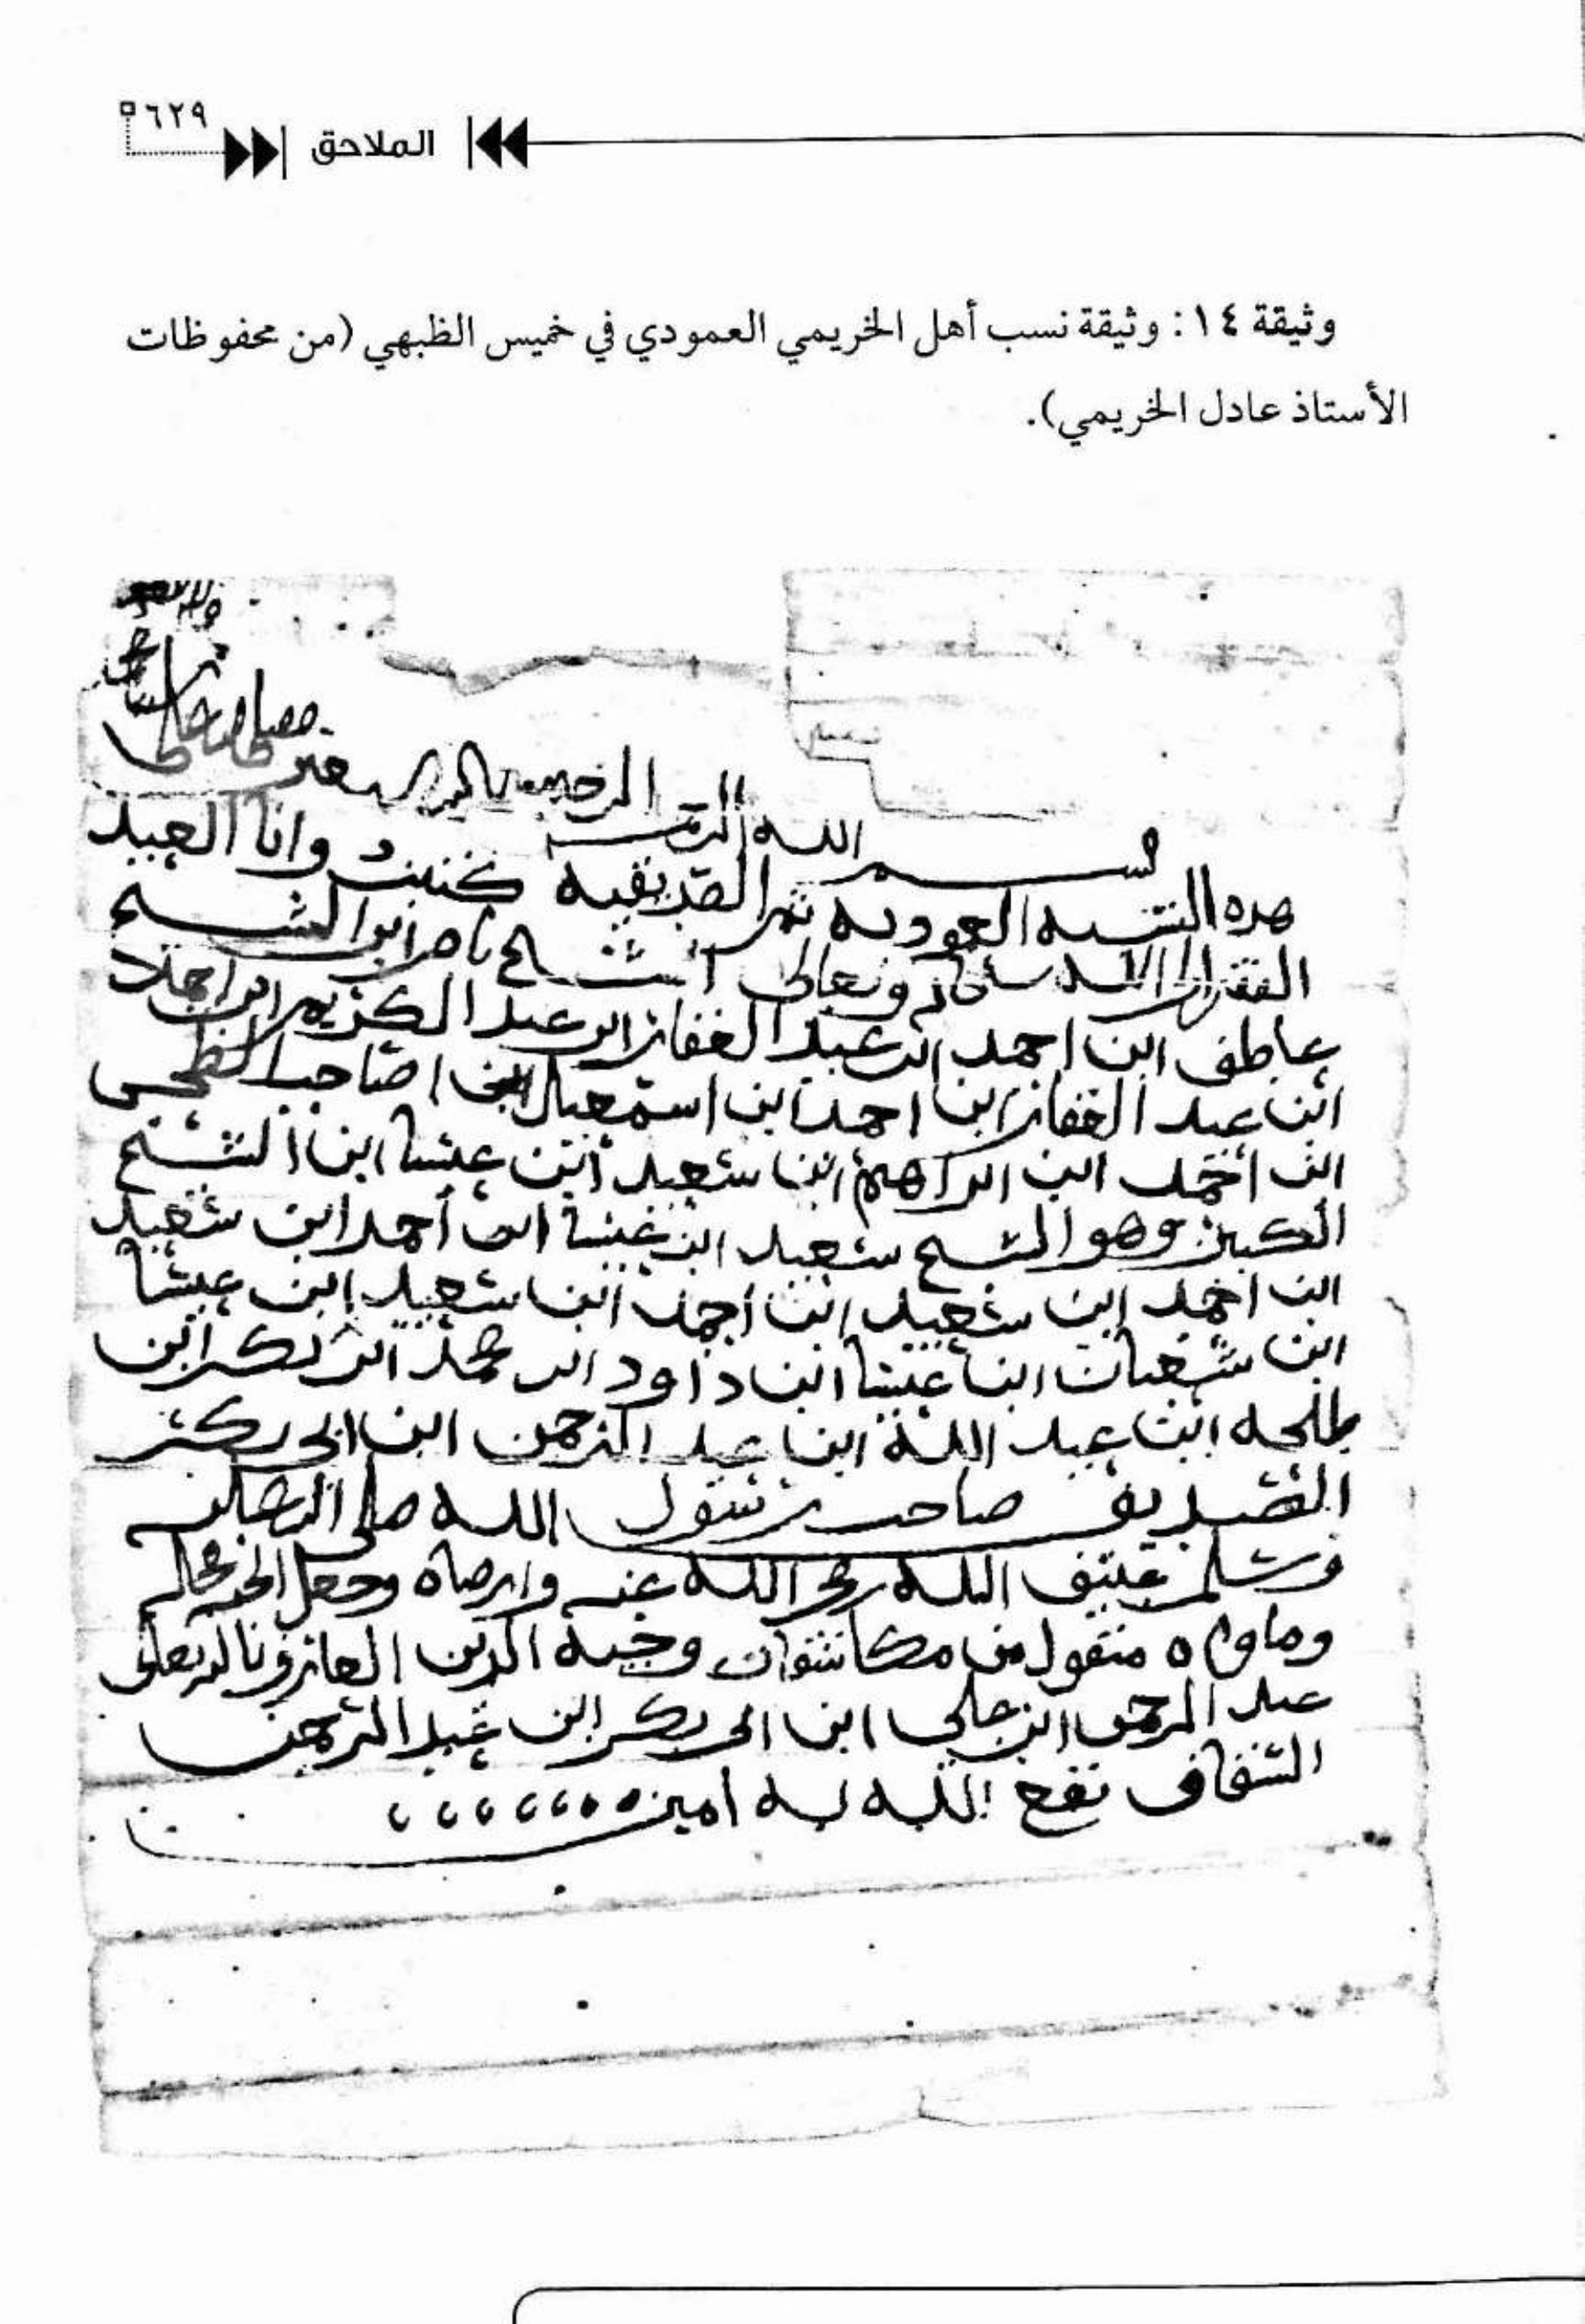 ٦٢٩
الملاحق
وثيقة ١٤: وثيقة نسب أهل الخريمي العمودي في خميس الظبهي (من محفوظات
الأستاذ عادل الخريمي).
بسم الله الرحمن الرحيم
هذه النسبه العموديه ثم الصديقيه كتبت وانا العبد
الفقير الى الله سبحانه وتعالى الشيخ ناصر ابن الشيخ
عاطف ابن احمد ابن عبد الغفار ابن عبد الكريم ابن احمد
ابن عبد الغفار ابن احمد ابن اسمعيل ابن صاحب
ابن احمد ابن ابراهيم ابن سعيد ابن عيسا ابن الشيخ
الكبير وهو الشيخ سعيد ابن عيسا ابن أحمد ابن سعيد
ابن احمد ابن سعيد ابن احمد ابن سعيد ابن عيسا
ابن شعبان ابن عيسا ابن داود ابن محمد ابن بكر ابن
طلحه ابن عبد الله ابن عبد الرحمن ابن ابي بكر
الصديق صاحب رسول الله صلى الله عليه
وسلم عتيق الله رضي الله عنه وارضاه وجعل الجنه
وماواه منقول من وجيه الدين العارف بالله تعالى
عبد الرحمن ابن علي ابن ابي بكر ابن عبد الرحمن
السقاف نفع الله به امين